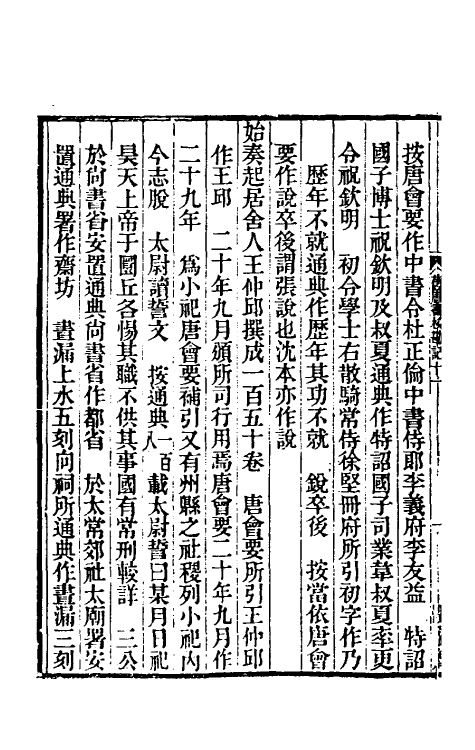 按唐會要作中書令杜正倫中書侍郎李義府李友益　特詔
國子博士祝欽明及叔夏通典作特詔國子司業韋叔夏率更
令祝欽明　初令學士右散騎常侍徐堅冊府所引初字作乃
歷年不就通典作歷年其功不就　銳卒後　按當依唐會
要作說卒後謂張說也沈本亦作說
始奏起居舍人王仲邱撰成一百五十卷　唐會要所引王仲邱
作王邱　二十年九月頒所司行用焉唐會要二十年九月作
二十九年　爲小祀唐會要補引又有州縣之社稷列小祀內
今志脫　太尉讀誓文　按通典一百八載太尉誓曰某月日祀
昊天上帝于圜丘各惕其職不供其事國有常刑較詳　三公
於尚書省安置通典尚書省作都省　於太常郊社太廟署安
置通典署作齋坊　晝漏上水五刻向祠所通典作晝漏三刻